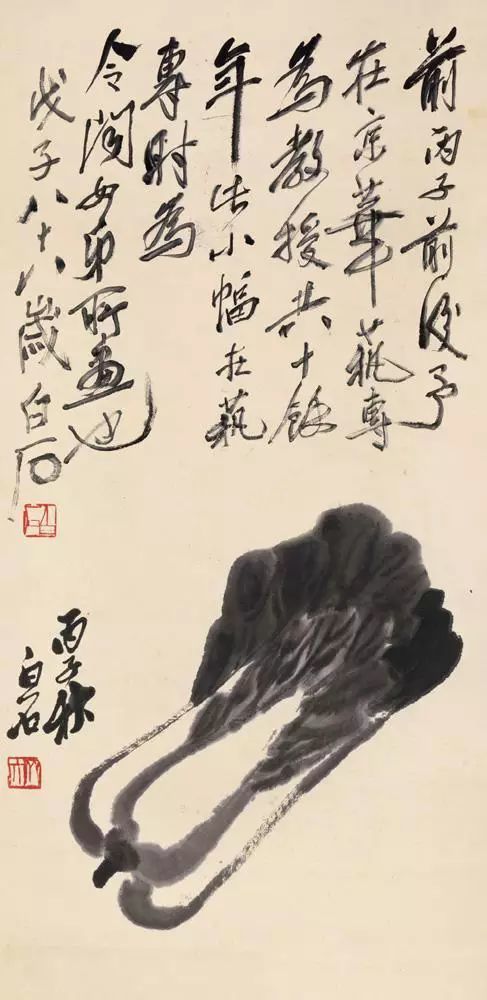 前丙子前後予
在京華藝專
為教授共十餘
年此小幅在藝
專時為
令女弟所畫也
戊子八十八歲白石
丙子秋
白石